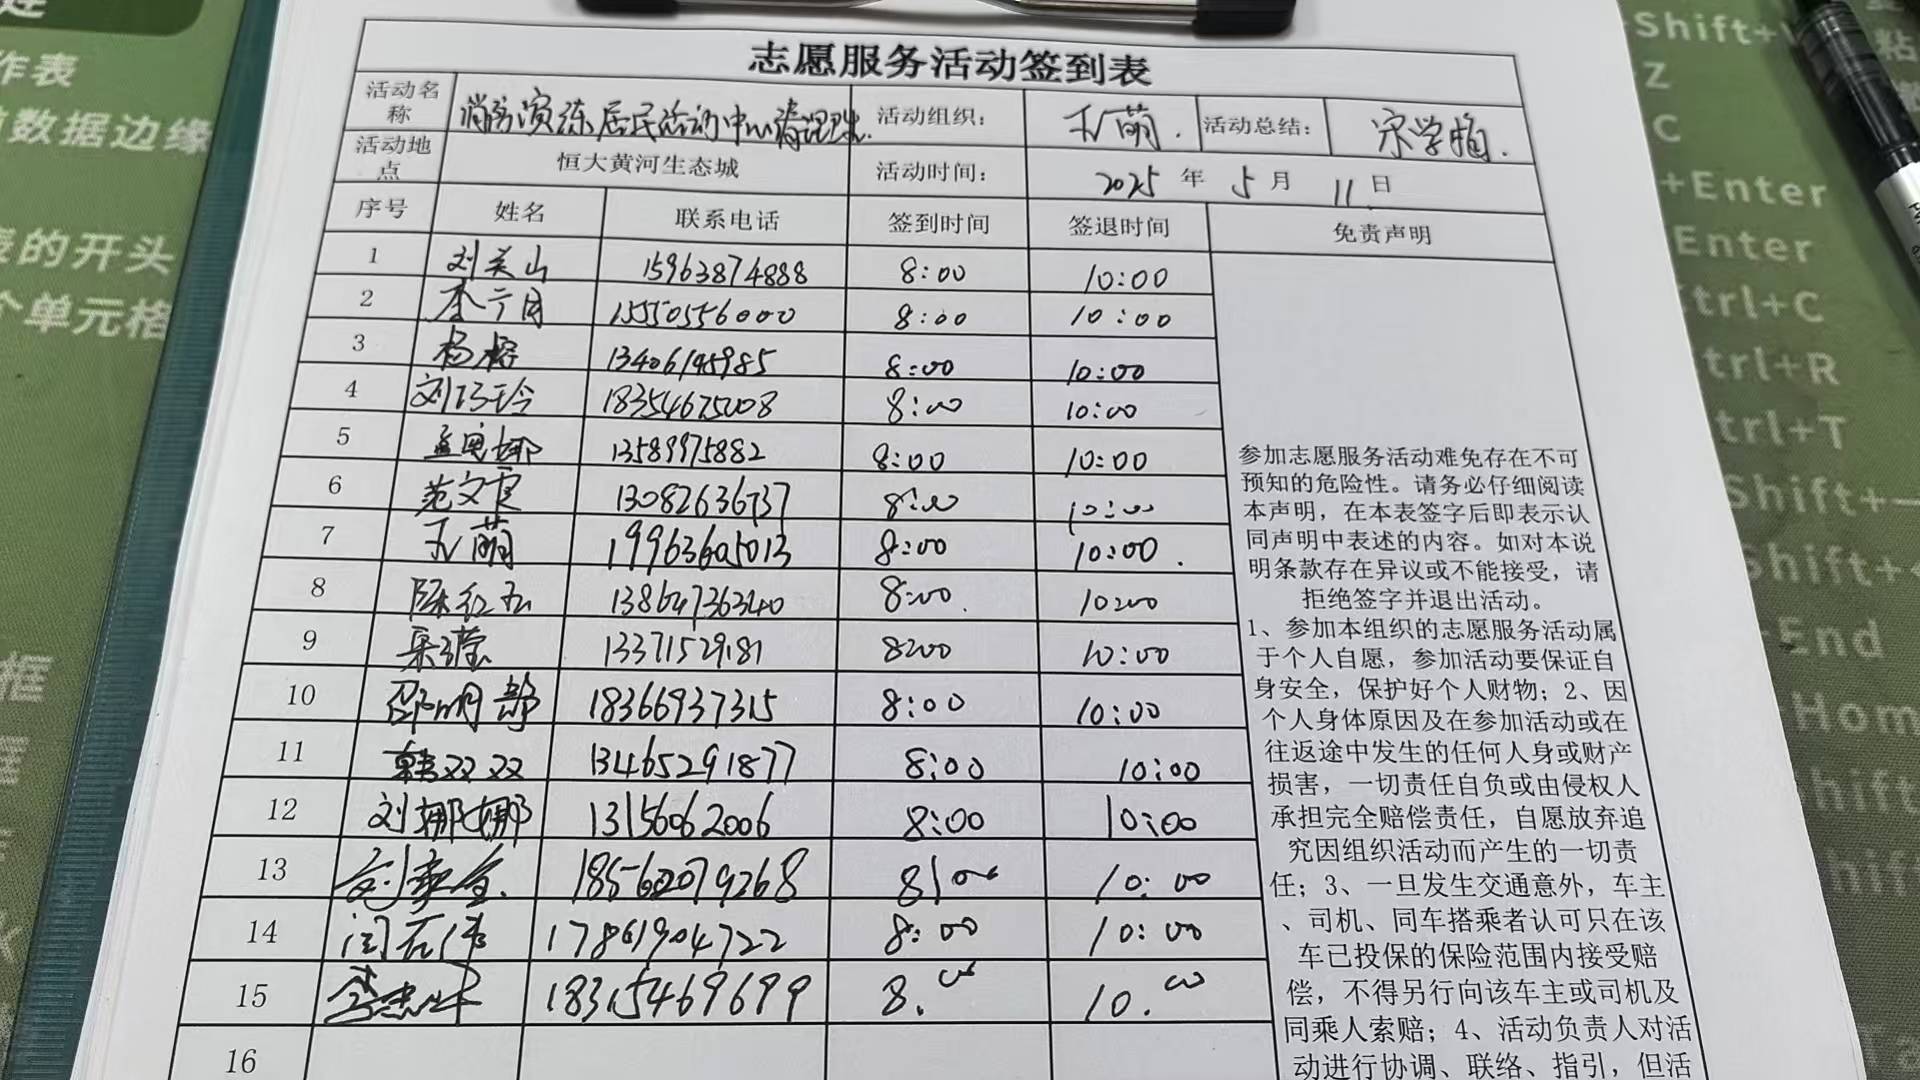 作表
数据边缘
的开头
个单元格
框
Shift+
Z
C
+Enter
Enter
Ctrl+C
trl+R
trl+T
Shift+
Shift+
End
Hom
志愿服务活动签到表
活动名称 消防演练居民活动中心清理垃圾 活动组织: 王萌. 活动总结: 宋学梅.
活动地点 恒大黄河生态城 活动时间: 2025 年 5 月 11 日
序号 姓名 联系电话 签到时间 签退时间 免责声明
1 刘美山 15963874888 8:00 10:00
2 15550556000 8:00 10:00
3 杨榕 13406145985 8:00 10:00
4 刘巧玲 18354675008 8:00 10:00
5 孟娜 13589975882 8:00 10:00
6 范文 13082636737 8:00 10:00
7 王萌 19963605013 8:00 10:00.
8 陈红 13864736340 8:00. 10:00
9 莹 13371529181 8:00 10:00
10 邵明 18366937315 8:00 10:00
11 韩双双 13465291877 8:00 10:00
12 刘娜娜 13156062006 8:00 10:00
13 刘 18562079268 8:00 10:00
14 闫 17861904722 8:00 10:00
15 李 18315469699 8:00 10:00
16
参加志愿服务活动难免存在不可
预知的危险性。请务必仔细阅读
本声明，在本表签字后即表示认
同声明中表述的内容。如对本说
明条款存在异议或不能接受，请
拒绝签字并退出活动。
1、参加本组织的志愿服务活动属
于个人自愿，参加活动要保证自
身安全，保护好个人财物；2、因
个人身体原因及在参加活动或在
往返途中发生的任何人身或财产
损害，一切责任自负或由侵权人
承担完全赔偿责任，自愿放弃追
究因组织活动而产生的一切责
任；3、一旦发生交通意外，车主
、司机、同车搭乘者认可只在该
车已投保的保险范围内接受赔
偿，不得另行向该车主或司机及
同乘人索赔；4、活动负责人对活
动进行协调、联络、指引，但活